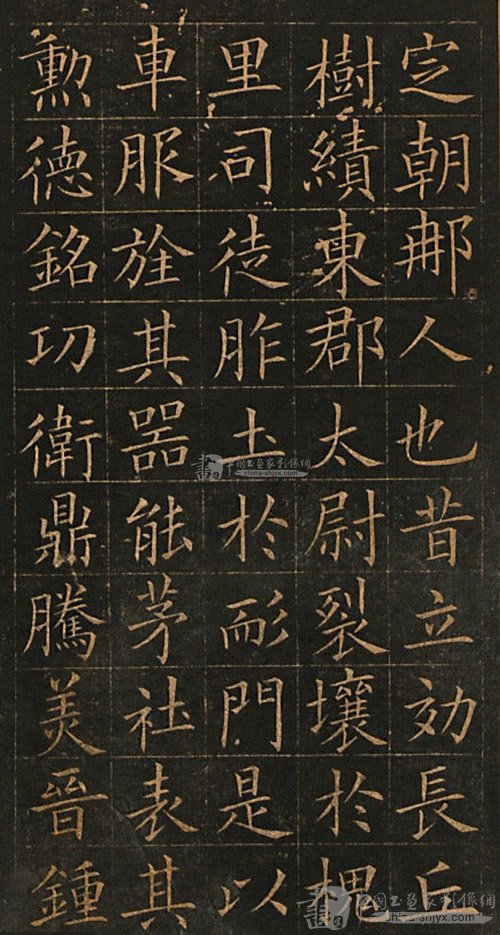 㝎朝那人也昔立効長丘
樹績東郡太尉裂壤於槐
里司徒胙土於耏門是以
車服旌其器能茅社表其
勳德銘功衛鼎騰美晉鍾
china-shjyx.com
china-shjyx.com